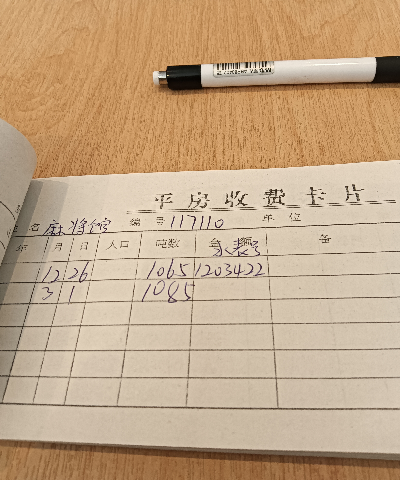 平房收费卡片
名 麻将馆 编号 117110 单位
年 月 日 人口 吨数 金额 水表号 备
12 26 1065 1203422
3 1 1085